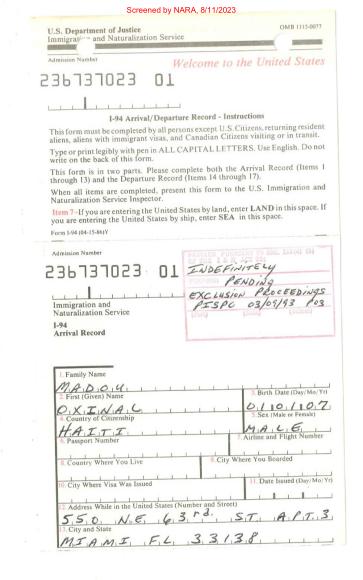 Screened by NARA, 8/11/2023
U.S. Department of Justice
OMB 1115-0077
Immigration and Naturalization Service
Admission Number
Welcome to the United States
236737023 01
I-94 Arrival/Departure Record - Instructions
This form must be completed by all persons except U.S. Citizens, returning resident
aliens, aliens with immigrant visas, and Canadian Citizens visiting or in transit.
Type or print legibly with pen in ALL CAPITAL LETTERS. Use English. Do not
write on the back of this form.
This form is in two parts. Please complete both the Arrival Record (Items 1
through 13) and the Departure Record (Items 14 through 17).
When all items are completed, present this form to the U.S. Immigration and
Naturalization Service Inspector.
Item 7-If you are entering the United States by land, enter LAND in this space. If
you are entering the United States by ship, enter SEA in this space.
Form I-94 (04-15-86)Y
Admission Number
236737023 01
INDEFINITELY
PENDING
EXCLUSION PROCEEDINGS
PISPC 03/09/93 P03
Immigration and
Naturalization Service
I-94
Arrival Record
1. Family Name
MADOU
2. First (Given) Name
3. Birth Date (Day/Mo/Yr)
OXINAC
4. Country of Citizenship
5. Sex (Male or Female)
HAITI
MALE
6. Passport Number
7. Airline and Flight Number
8. Country Where You Live
9. City Where You Boarded
10. City Where Visa Was Issued
11. Date Issued (Day/Mo/Yr)
12. Address While in the United States (Number and Street)
550 NE 63rd. ST APT 3
13. City and State
MIAMI FL 33138